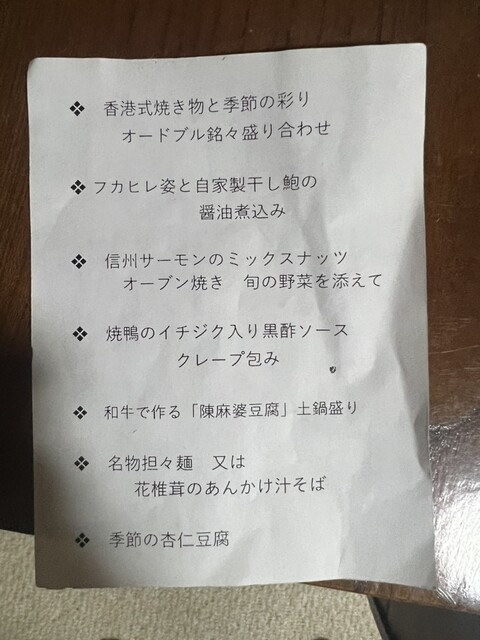 ❖ 香港式焼き物と季節の彩り
オードブル銘々盛り合わせ
❖ フカヒレ姿と自家製干し鮑の
醤油煮込み
❖ 信州サーモンのミックスナッツ
オーブン焼き　旬の野菜を添えて
❖ 焼鴨のイチジク入り黒酢ソース
クレープ包み
❖ 和牛で作る「陳麻婆豆腐」土鍋盛り
❖ 名物担々麺　又は
花椎茸のあんかけ汁そば
❖ 季節の杏仁豆腐